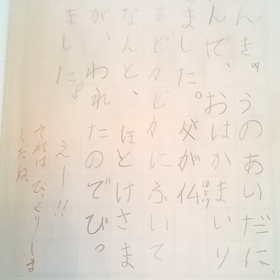 んきゅうのあいだに、
んで、おはかまいり
ました。父が仏
ほとけ
ピカピカにふいて
なんと、ほとけさま
が、われたのでびっ
ました。
えー!!
それはびっくりしま
したね。